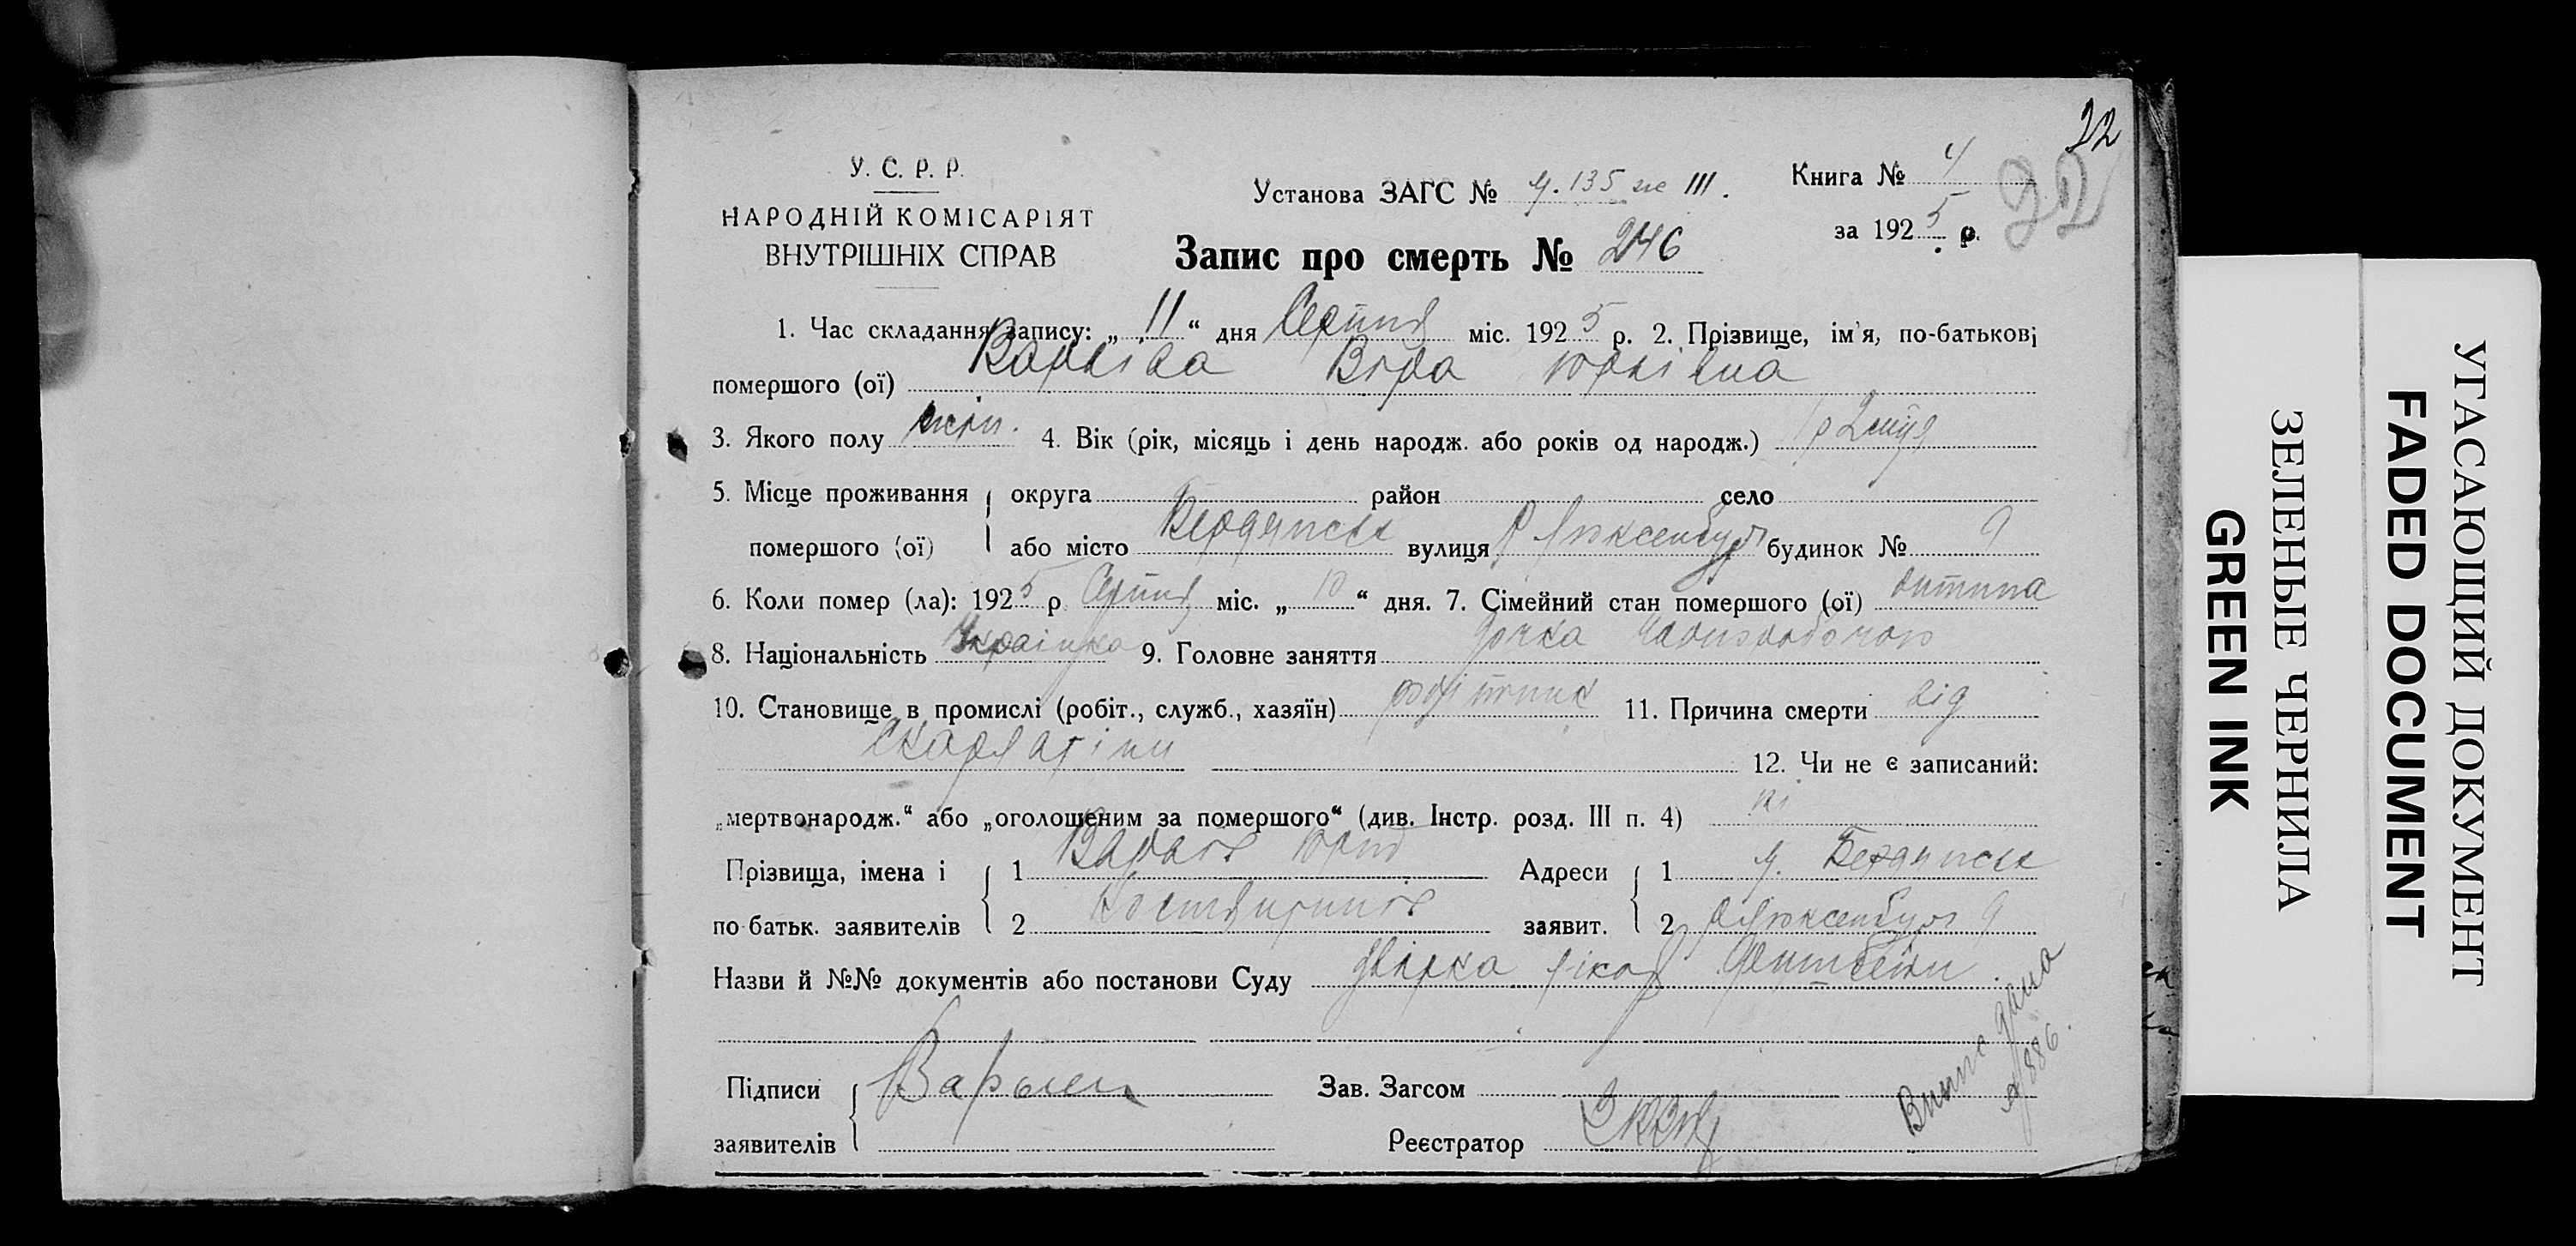 22
22
У. С. Р. Р.
НАРОДНІЙ КОМІСАРІЯТ
ВНУТРІШНІХ СПРАВ
Установа ЗАГС № 135 III.
Книга № 4
за 1925 р.
Запис про смерть № 246
1. Час складання запису: „ 11 “ дня Серпня міс. 1925 р. 2. Прізвище, ім'я, по-батькові
помершого (ої) Віра Юріївна
3. Якого полу жін. 4. Вік (рік, місяць і день народж. або років од народж.)
5. Місце проживання округа район село
помершого (ої) або місто Бердянськ вулиця Р Люксембург будинок № 9
6. Коли помер (ла): 1925 р Серпня міс. „ 10 “ дня. 7. Сімейний стан помершого (ої) дитина
8. Національність Українка 9. Головне заняття дочка
10. Становище в промислі (робіт., служб., хазяїн) робітник 11. Причина смерти від
скарлатіни
12. Чи не є записаний:
„мертвонародж.“ або „оголошеним за помершого“ (див. Інстр. розд. III п. 4) ні
Прізвища, імена і 1 Юрій Адреси 1 м. Бердянськ
по батьк. заявителів 2 заявит. 2 Р Люксембург 9
Назви й №№ документів або постанови Суду
Підписи
заявителів
Зав. Загсом
Реєстратор
886.
УГАСАЮЩИЙ ДОКУМЕНТ
FADED DOCUMENT
ЗЕЛЕНЫЕ ЧЕРНИЛА
GREEN INK